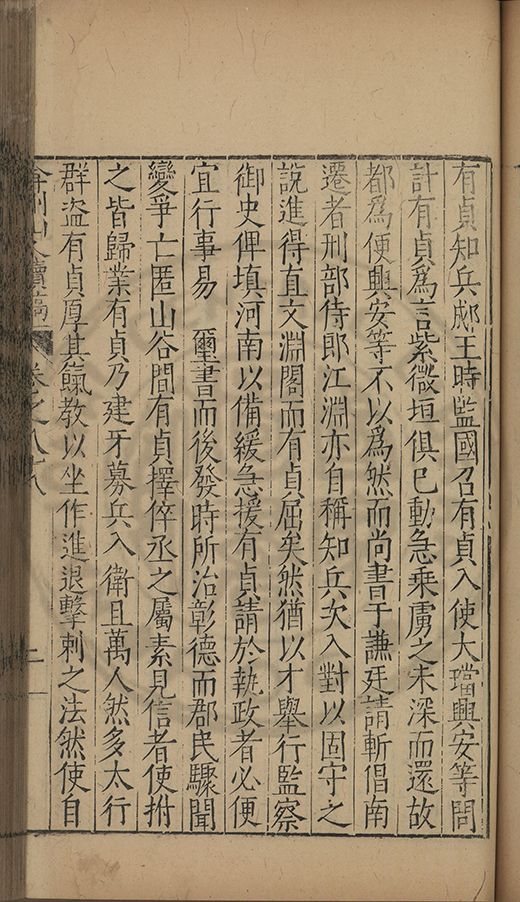 有貞知兵郕王時監國召有貞入使大璫興安等問
計有貞爲言紫微垣俱已動急乘虜之未深而還故
都爲便興安等不以爲然而尚書于謙廷請斬倡南
遷者刑部侍郎江淵亦自稱知兵次入對以固守之
說進得直文淵閣而有貞屈矣然猶以才舉行監察
御史俾填河南以備緩急援有貞請於執政者必便
宜行事易 璽書而後發時所治彰德而郡民驟聞
變爭亡匿山谷間有貞擇倅丞之屬素見信者使拊
之皆歸業有貞乃建牙募兵入衛且萬人然多太行
群盜有貞厚其餼教以坐作進退擊刺之法然使自
弇州山人續稿 卷之八十八 二